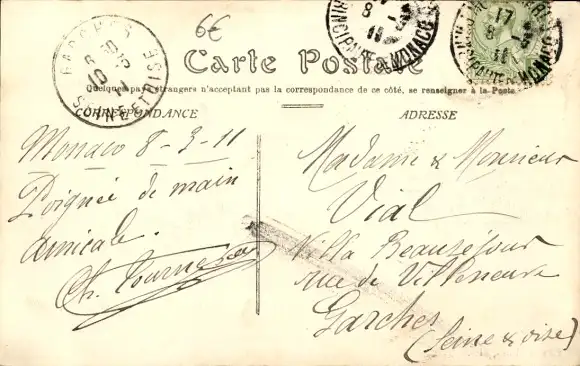 6€
GARCHES
6 30
10 3
11
SEINE ET OISE
17
8 - 3
11
MONACO
17
8 - 3
11
MONACO
Carte Postale
Quelques pays étrangers n'acceptant pas la correspondance de ce côté, se renseigner à la Poste
CORRESPONDANCE
Monaco 8-3-11
Poignée de main
amicale.
Ch.
ADRESSE
Madame & Monsieur
Vial
Villa Beauséjour
rue de Villeneuve
Garches
(Seine & Oise)